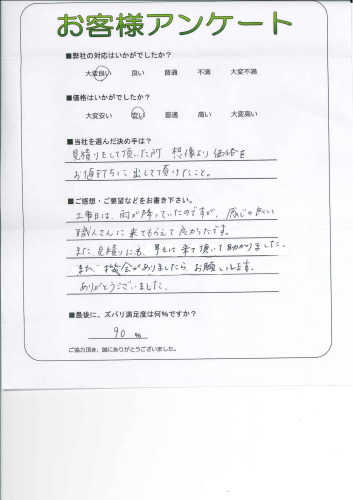 お客様アンケート
■弊社の対応はいかがでしたか?
大変良い 良い 普通 不満 大変不満
■価格はいかがでしたか?
大変安い 安い 普通 高い 大変高い
■当社を選んだ決め手は?
見積りをして頂いた所 想像より価格を
お値打ちに出して頂けたこと。
■ご感想・ご要望などをお書き下さい。
工事日は、雨が降っていたのですが、感じの良い
職人さんに来てもらえて良かったです。
また、見積りにも、早く来て頂いて助かりました。
また、機会がありましたら、お願いします。
ありがとうございました。
■最後に、ズバリ満足度は何%ですか?
90 %
ご協力頂き、誠にありがとうございました。